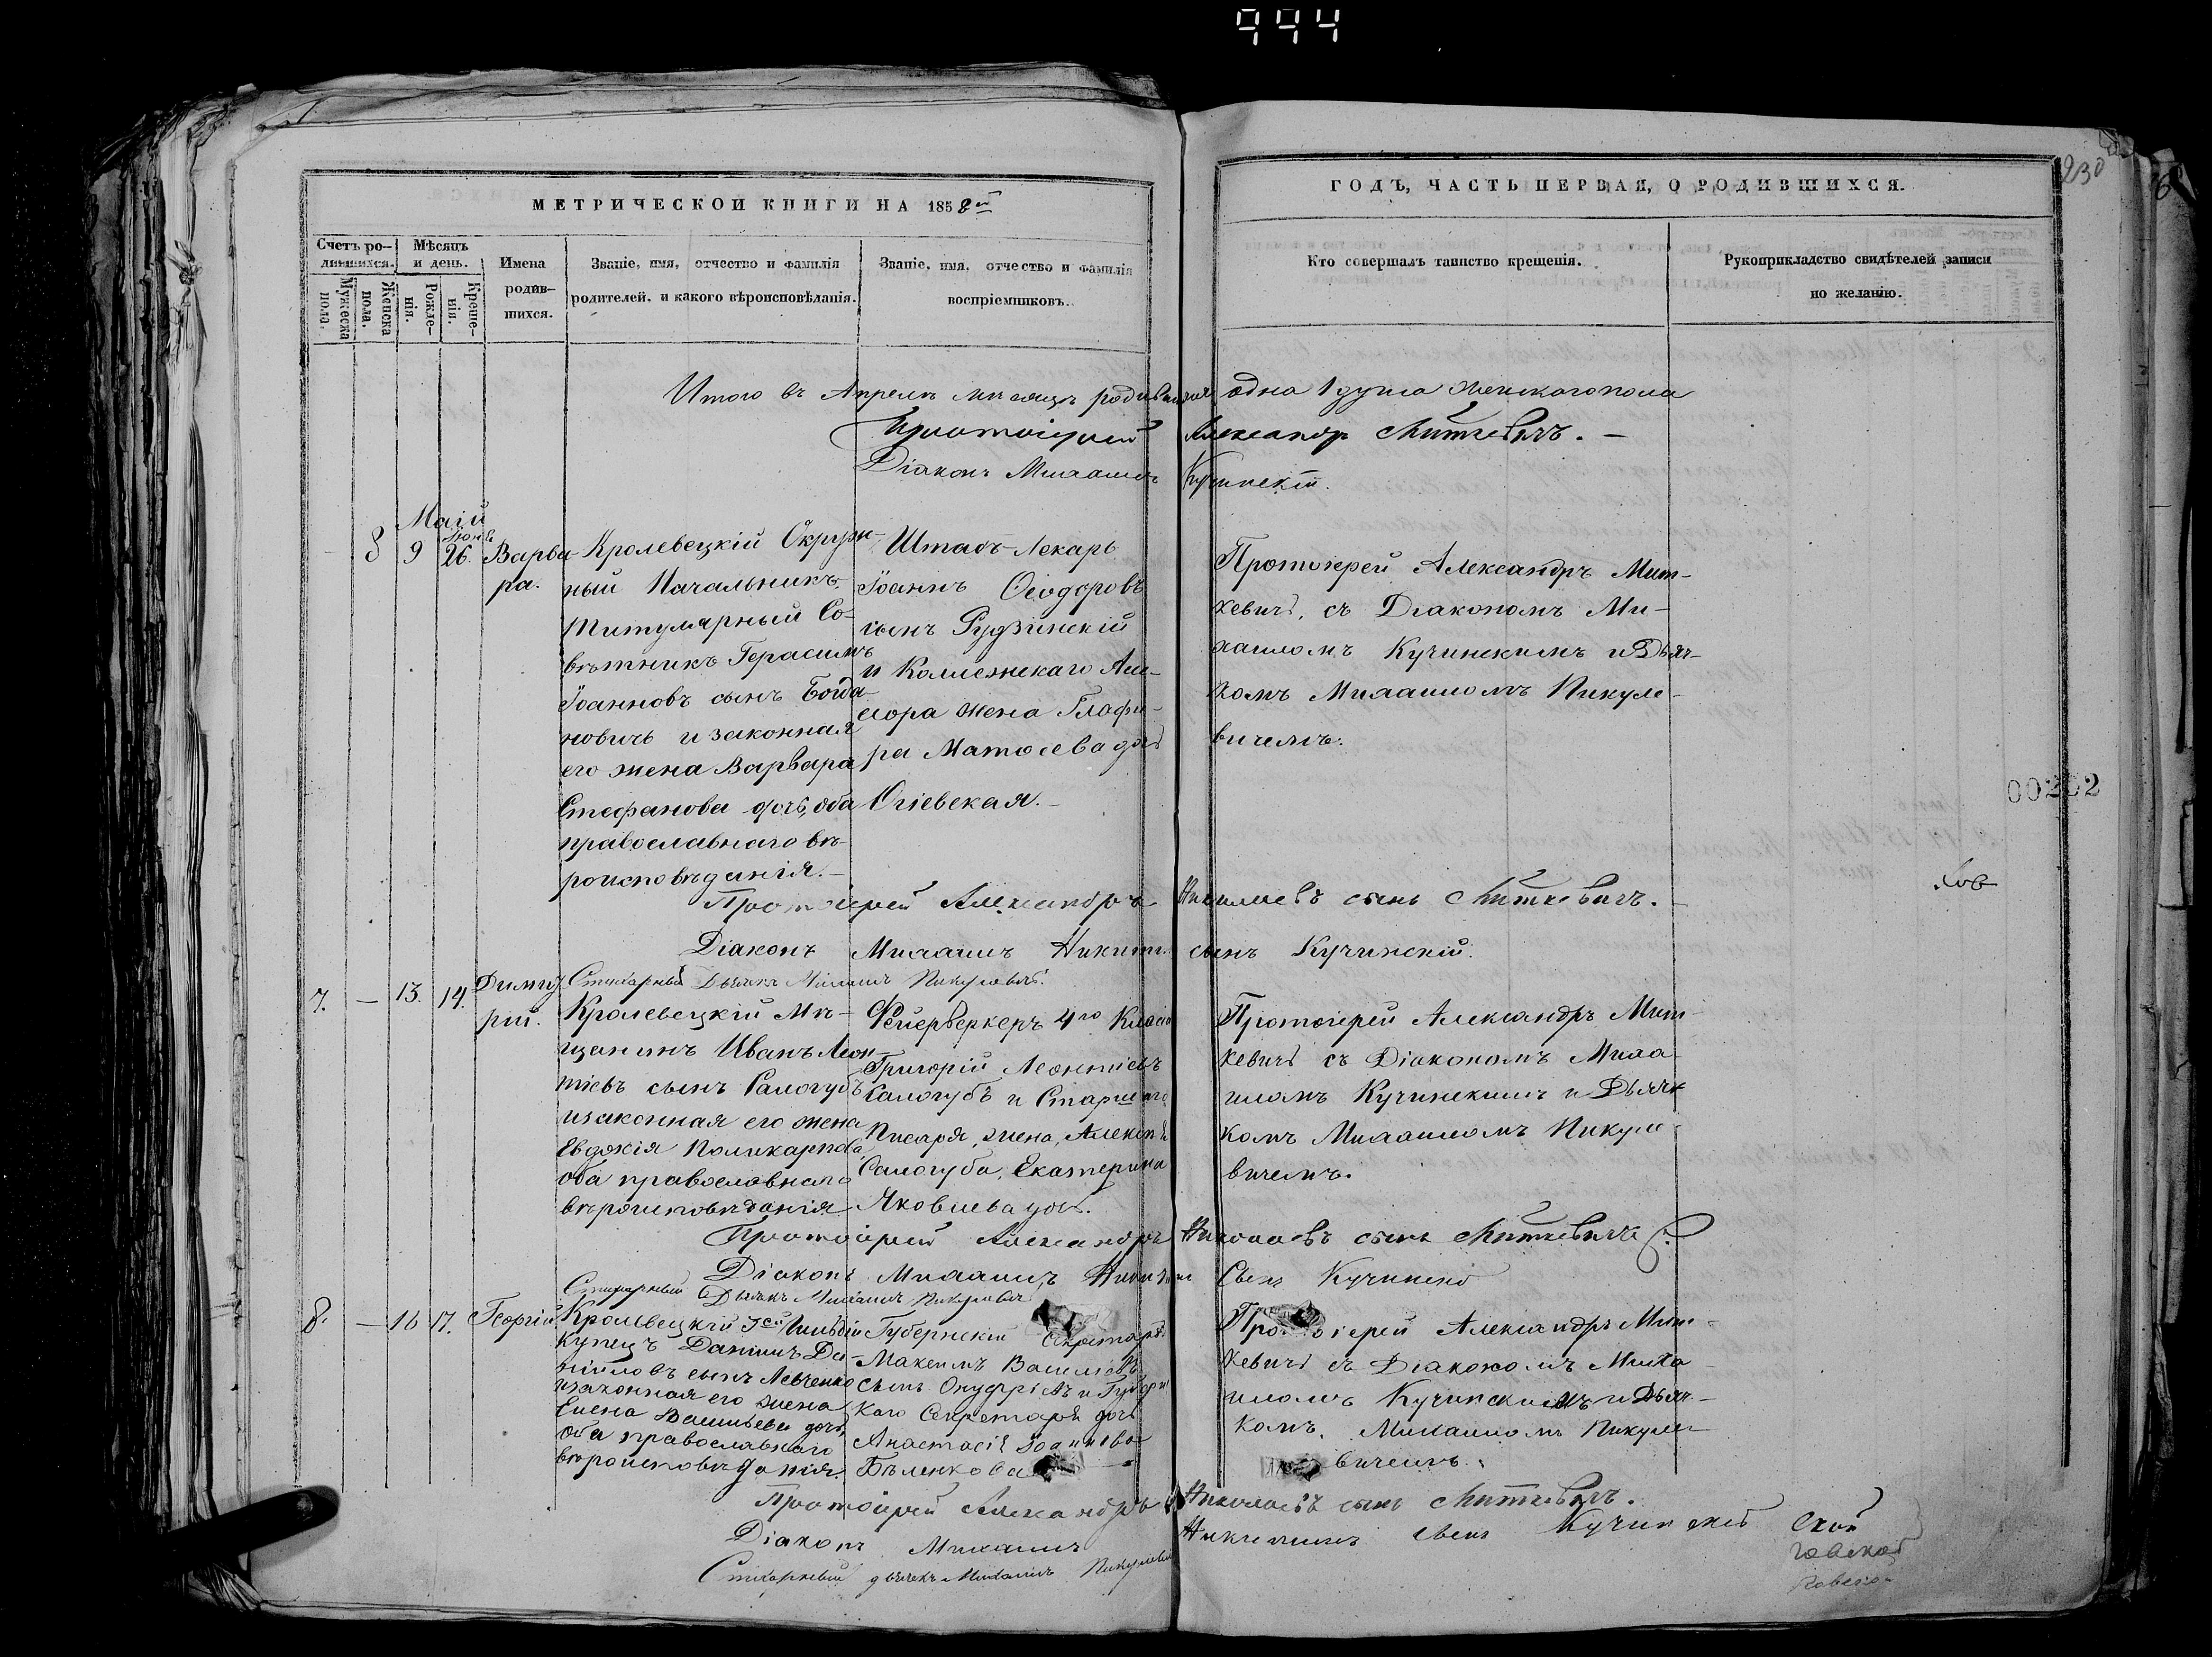 994
230
МЕТРИЧЕСКОЙ КНИГИ НА 1858й
ГОДЪ, ЧАСТЬ ПЕРВАЯ, О РОДИВШИХСЯ.
Счетъ ро-
дившихся.
Мужеска
пола.
Женска
пола.
Мѣсяцъ
и день.
Рожде-
нія.
Креще-
нія.
Имена
родив-
шихся.
Званіе, имя, отчество и фамилія
родителей, и какого вѣроисповѣданія.
Званіе, имя, отчество и фамилія
воспріемниковъ.
Кто совершалъ таинство крещенія.
Рукоприкладство свидѣтелей записи
по желанію.
Итого въ Апрелѣ мѣсяцѣ родившихся одна 1 душа женскаго пола
Протоіерей Александръ Миткевичъ.
Діаконъ Михаилъ Кучинскій.
Маій
Іюнь
8 9 26. Варва-
ра.
Кролевецкій Окруж-
ный Начальникъ,
Титулярный Со-
вѣтникъ Герасимъ
Іоанновъ сынъ Богда-
новичъ и законная
его жена Варвара
Стефанова дочь, оба
православнаго вѣ-
роисповѣданія.
Штабъ-Лекарь
Іоаннъ Ѳеодоровъ
сынъ Рудзинскій
и Коллежскаго Асе-
сора жена Глафи-
ра Матѳеева дочь
Огіевская.
Протоіерей Александръ Мит-
кевичъ, съ Діакономъ Ми-
хаиломъ Кучинскимъ и Дьяч-
комъ Михаиломъ Пикуле-
вичемъ.
00202
Протоіерей Александръ Николаевъ сынъ Миткевичъ.
Діаконъ Михаилъ Никитинъ сынъ Кучинскій.
Стихарный Дьячекъ Михаилъ Пикулевичъ.
7. — 13. 14. Димит
рій.
Кролевецкій Мѣ-
щанинъ Иванъ Леон-
тіевъ сынъ Самогубъ
и законная его жена
Евдокія Поликарпова
оба православнаго
вѣроисповѣданія
Фейерверкеръ 4го Класса
Григорій Леонтіевъ
Самогубъ и Старшаго
Писаря, жена, Алексѣя
Самогуба, Екатерина
Яковлева дочь.
Протоіерей Александръ Мит-
кевичъ съ Діакономъ Миха-
иломъ Кучинскимъ и Дьяч-
комъ Михаиломъ Пикуле-
вичемъ.
Протоіерей Александръ Николаевъ сынъ Миткевичъ.
Діаконъ Михаилъ Никитинъ Сынъ Кучинскій
Стихарный Дьячекъ Михаилъ Пикулевичъ
8. — 16 17. Георгій
Кролевецкій 3ей Гильдіи
Купецъ Даніилъ Да-
ніиловъ сынъ Левченко
и законная его жена
Елена Васильева дочь,
оба православнаго
вѣроисповѣданія.
Губернскій Секретарь
Максимъ Василіевъ
сынъ Онуфріевъ и Губернс
каго Секретаря дочь
Анастасія Іоаннова
Бѣленкова
Протоіерей Александръ Мит-
кевичъ съ Діакономъ Миха-
иломъ Кучинскимъ и Дьяч-
комъ Михаиломъ Пикуле-
вичемъ.
Протоіерей Александръ Николаевъ сынъ Миткевичъ.
Діаконъ Михаилъ Никитинъ сынъ Кучинскій
Стихарный дьячекъ Михаилъ Пикулевичъ